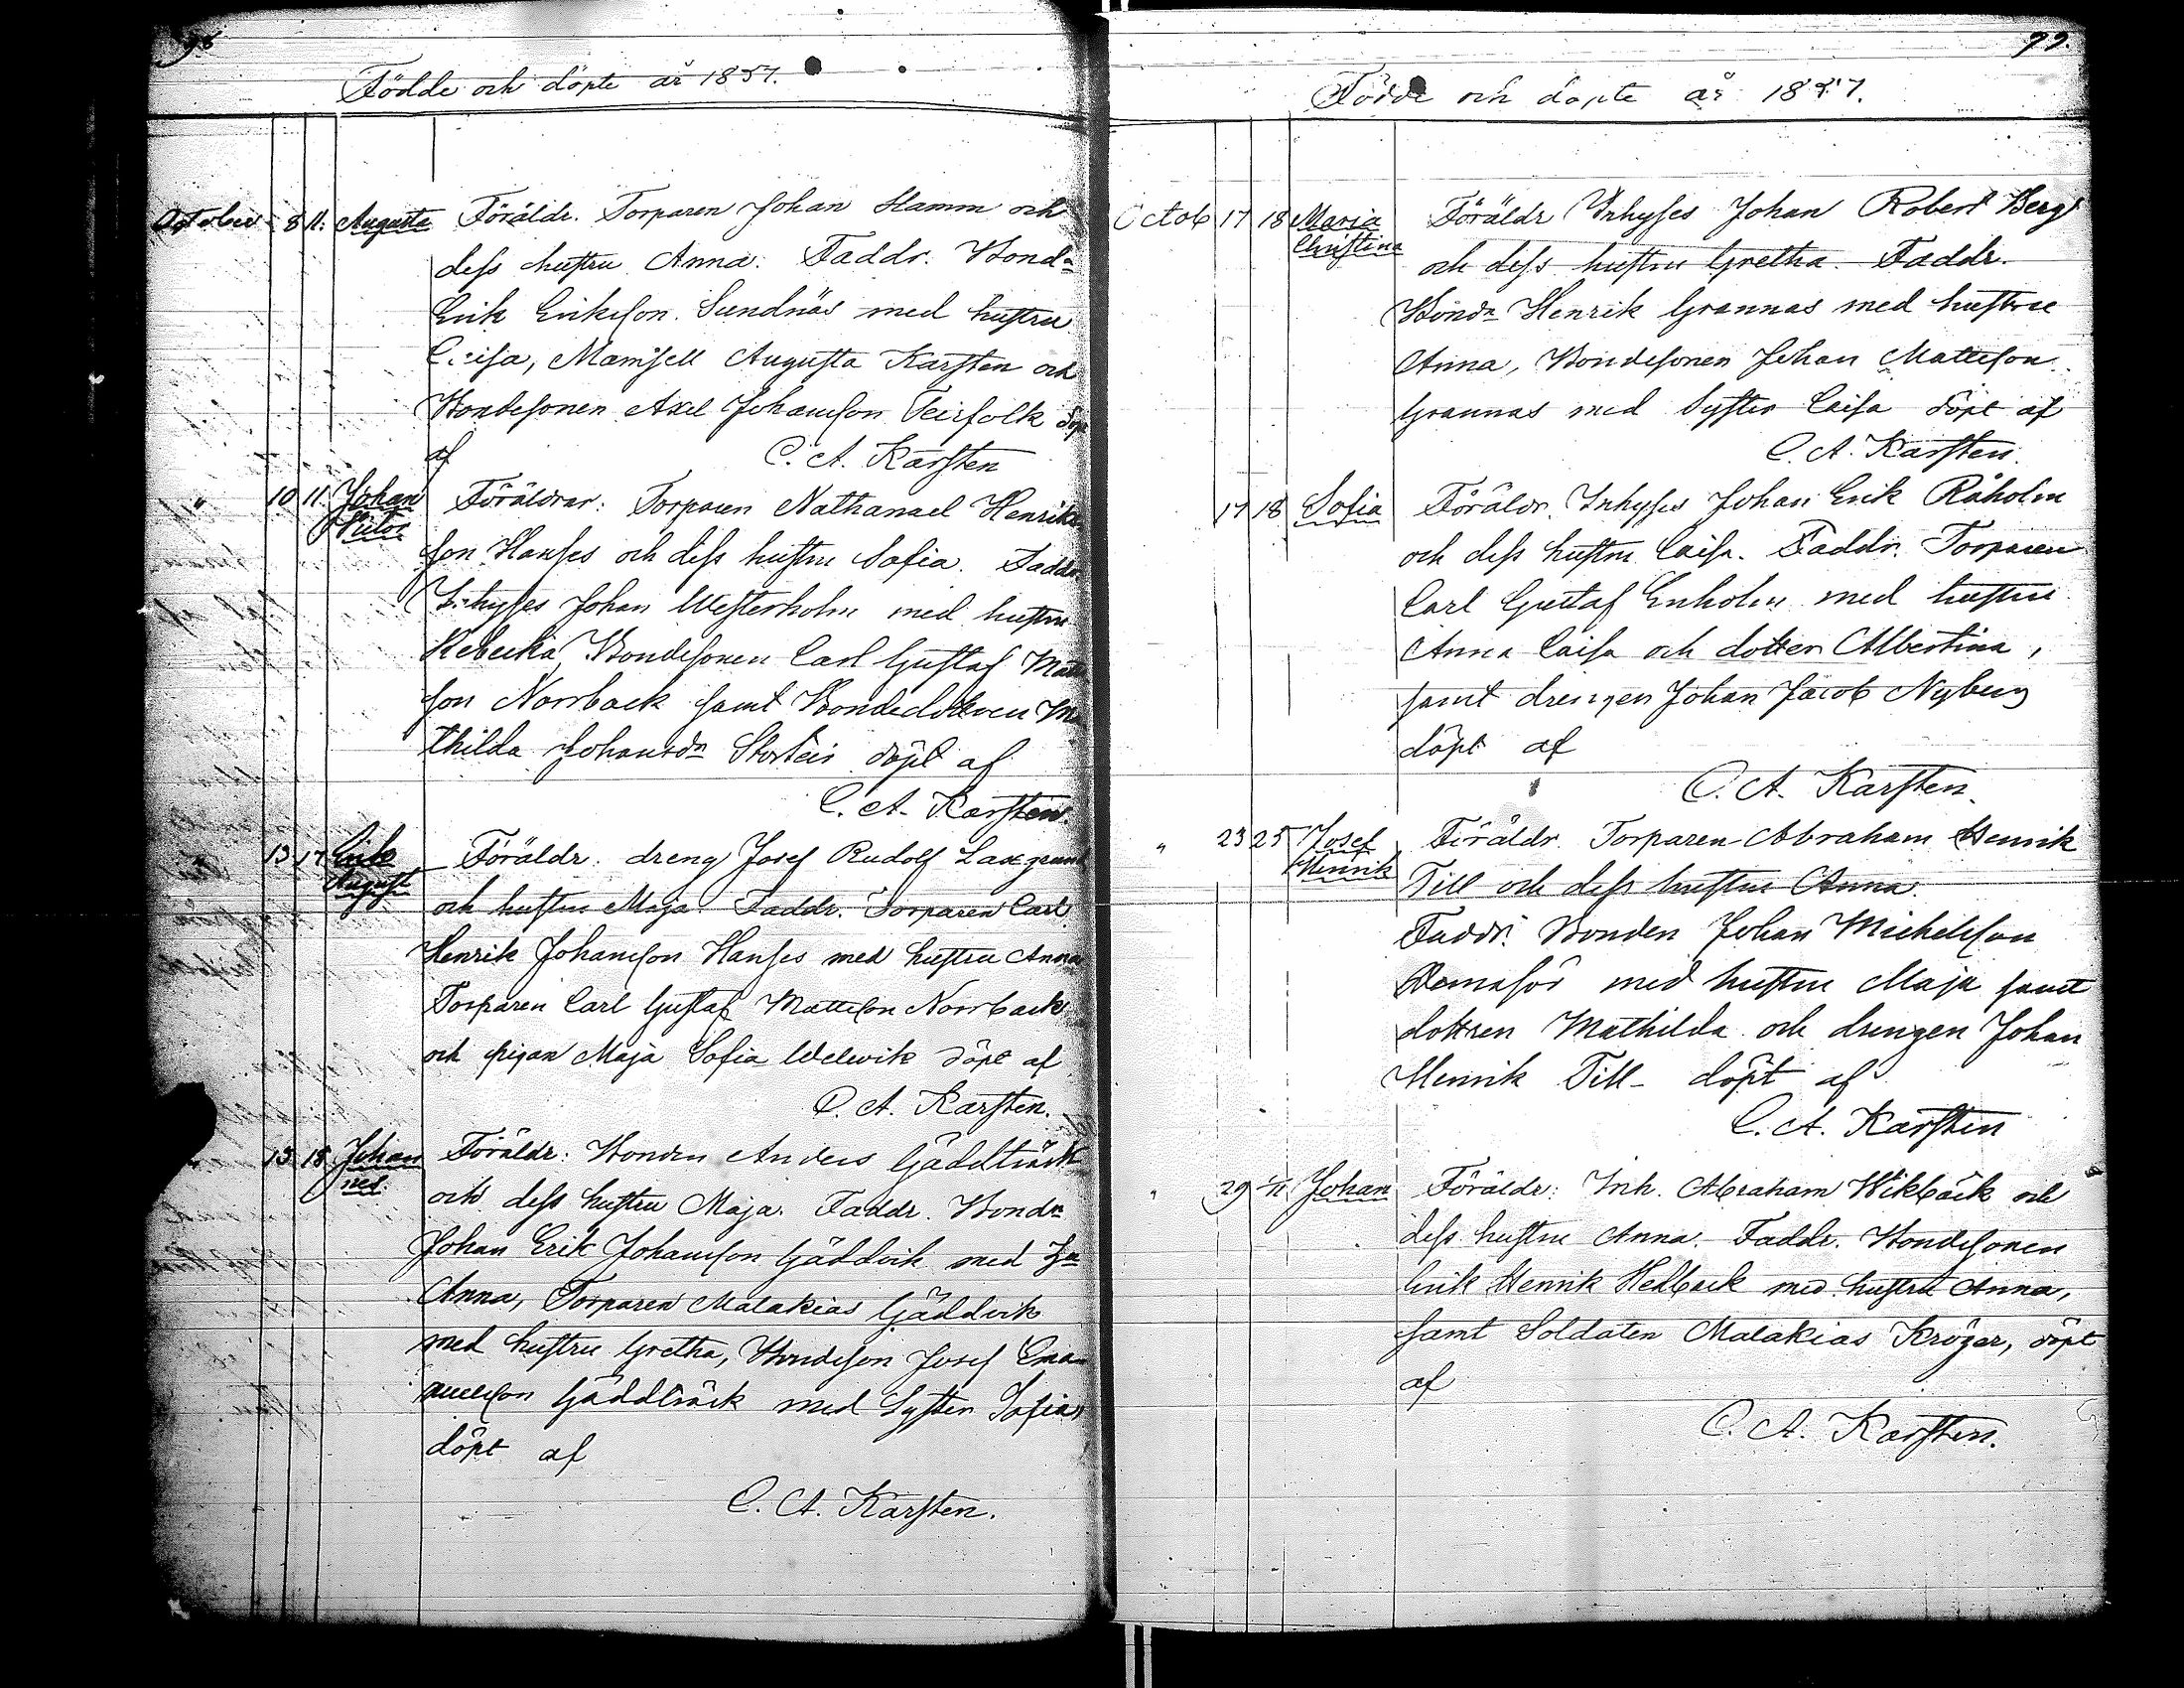 98
Födde och döpte år 1857.
October 8 11. Augusta Föräldr. Torparen Johan Hamm och
dess hustru Anna. Faddr. Bondn
Erik Eriksson Sundnäs med hustru
Caisa, Mamsell Augusta Karsten och
Bondesonen Axel Johansson Teirfolk döpt
af C. A. Karsten
" 10 11. Johan Föräldrar: Torparen Nathanael Henriks
Victor son Hanses och dess hustru Sofia. Faddr.
Inhyses Johan Westerholm med hustru
Rebecka, Bondesonen Carl Gustaf Matts
son Norrback samt Bondedottren Ma
thilda Johansdn Storteir döpt af
C. A. Karsten.
" 13 17 Erik Föräldr. dreng Josef Rudolf Laxgrund
August och hustru Maja. Faddr. Torparen Carl
Henrik Johansson Hanses med hustru Anna
Torparen Carl Gustaf Mattsson Norrback
och pigan Maja Sofia Welwik döpt af
C. A. Karsten.
" 13 18 Johan Föräldr: Bonden Anders Gäddträsk
nes. och dess hustru Maja. Faddr. Bondn
Johan Erik Johansson Gäddvik med H
Anna, Torparen Malakias Gäddvik
med hustru Gretha, Bondeson Josef Ema
nuelson Gäddträsk med Syster Sofia,
döpt af
C. A. Karsten.
99.
Födde och döpte år 1857.
Octob 17 18 Maria Föräldr Inhyses Johan Robert Berg
Christina och dess hustru Gretha. Faddr.
Bondn Henrik Grannas med hustru
Anna, Bondesonen Johan Mattsson
Grannas med Syster Caisa döpt af
C. A. Karsten.
17 18 Sofia Föräldr. Inhyses Johan Erik Råholm
och dess hustru Caisa. Faddr. Torparen
Carl Gustaf Enholm med hustru
Anna Caisa och dotter Albertina,
samt drengen Johan Jacob Nyberg
döpt af
C. A. Karsten.
" 23 25 Josef Föräldr. Torparen Abraham Henrik
Henrik Till och dess hustru Anna.
Faddr. Bonden Johan Michelsson
med hustru Maja samt
dottren Mathilda och drengen Johan
Henrik Till döpt af
C. A. Karsten
" 29 1/11 Johan Föräldr: Inh. Abraham Wikbäck och
dess hustru Anna. Faddr. Bondesonen
Erik Henrik Hedback med hustru Anna,
samt Soldaten Malakias Kröger, döpt
af
C. A. Karsten.